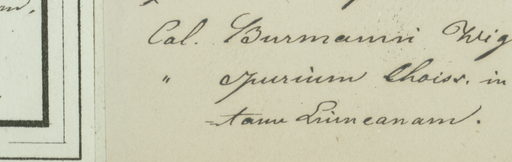 Cal. Burmanni Wig
" spurium Choiss. in
=tam Linneanam.